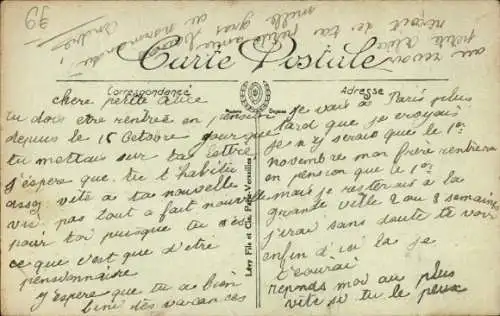 39
au revoir
petite Alice
reçoit de ta petite amie
mille gros
de normandie
Andrée
Carte Postale
Correspondance
Adresse
chere petite Alice
tu dois etre rentrée en pension
depuis le 15 Octobre pour que
tu mottais sur ta lettre
J'espere que tu t'habitu
assez vite a ta nouvelle
vie pas tout a fait nouvelle
pour toi puisque tu sais
ce que c'est que d'etre
pensionnaire
J'y Espere que tu as bien
bini des vacances
Lévy Fils et Cie, Paris-Versailles
je vais a Paris plus
tard que je croyais
je n'y serais que le 1er
novembre mon frère rentrera
en pension que le 1er
mais je resterais a la
grande ville 2 ou 3 semaines
J'irai sans doute te voir
enfin d'ici la je
t'ecourai
reponds moi au plus
vite si tu le peux